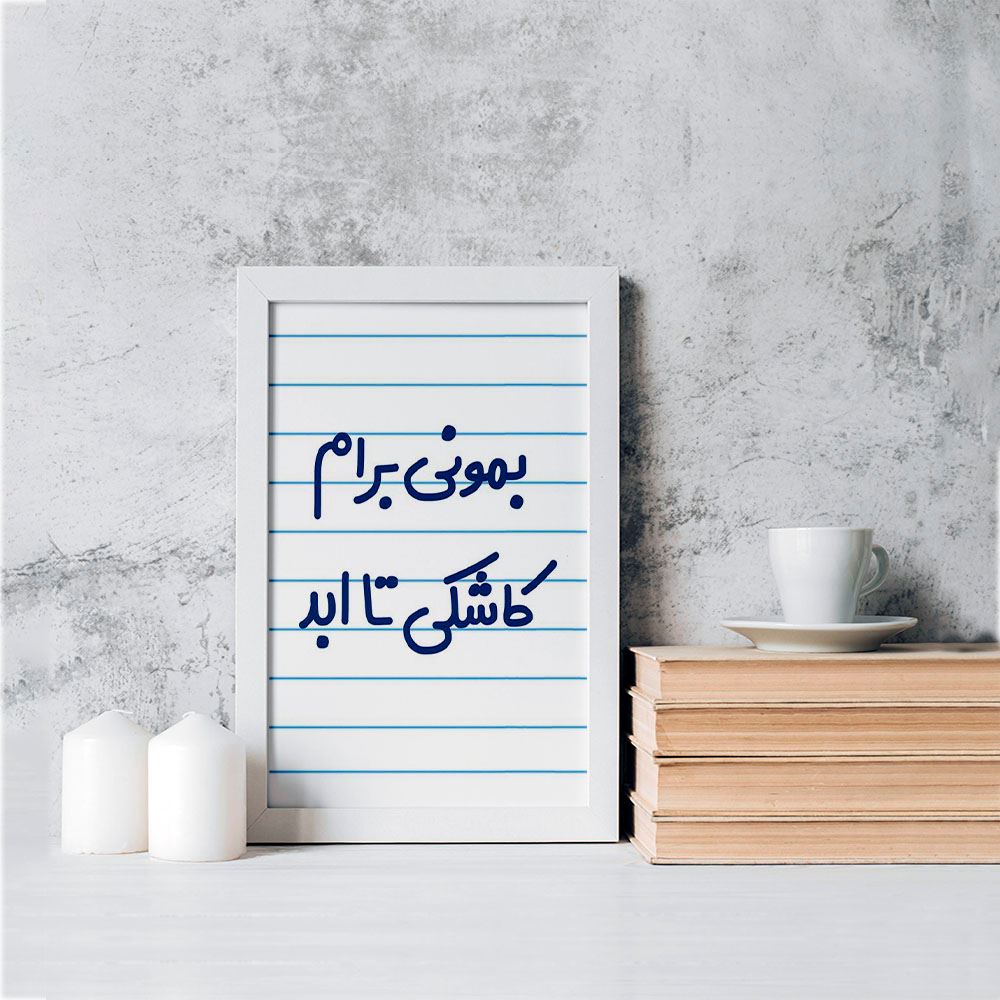 بمونی برام
کاشکی تا ابد